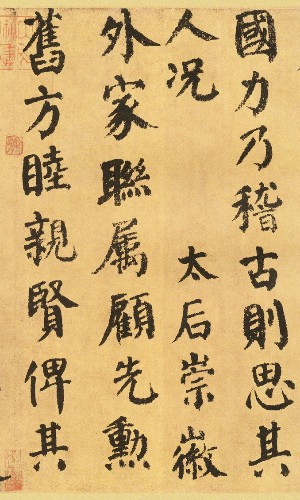 國力乃稽古則思其
人况　太后崇徽
外家聯属顧先勳
舊方睦親賢俾其